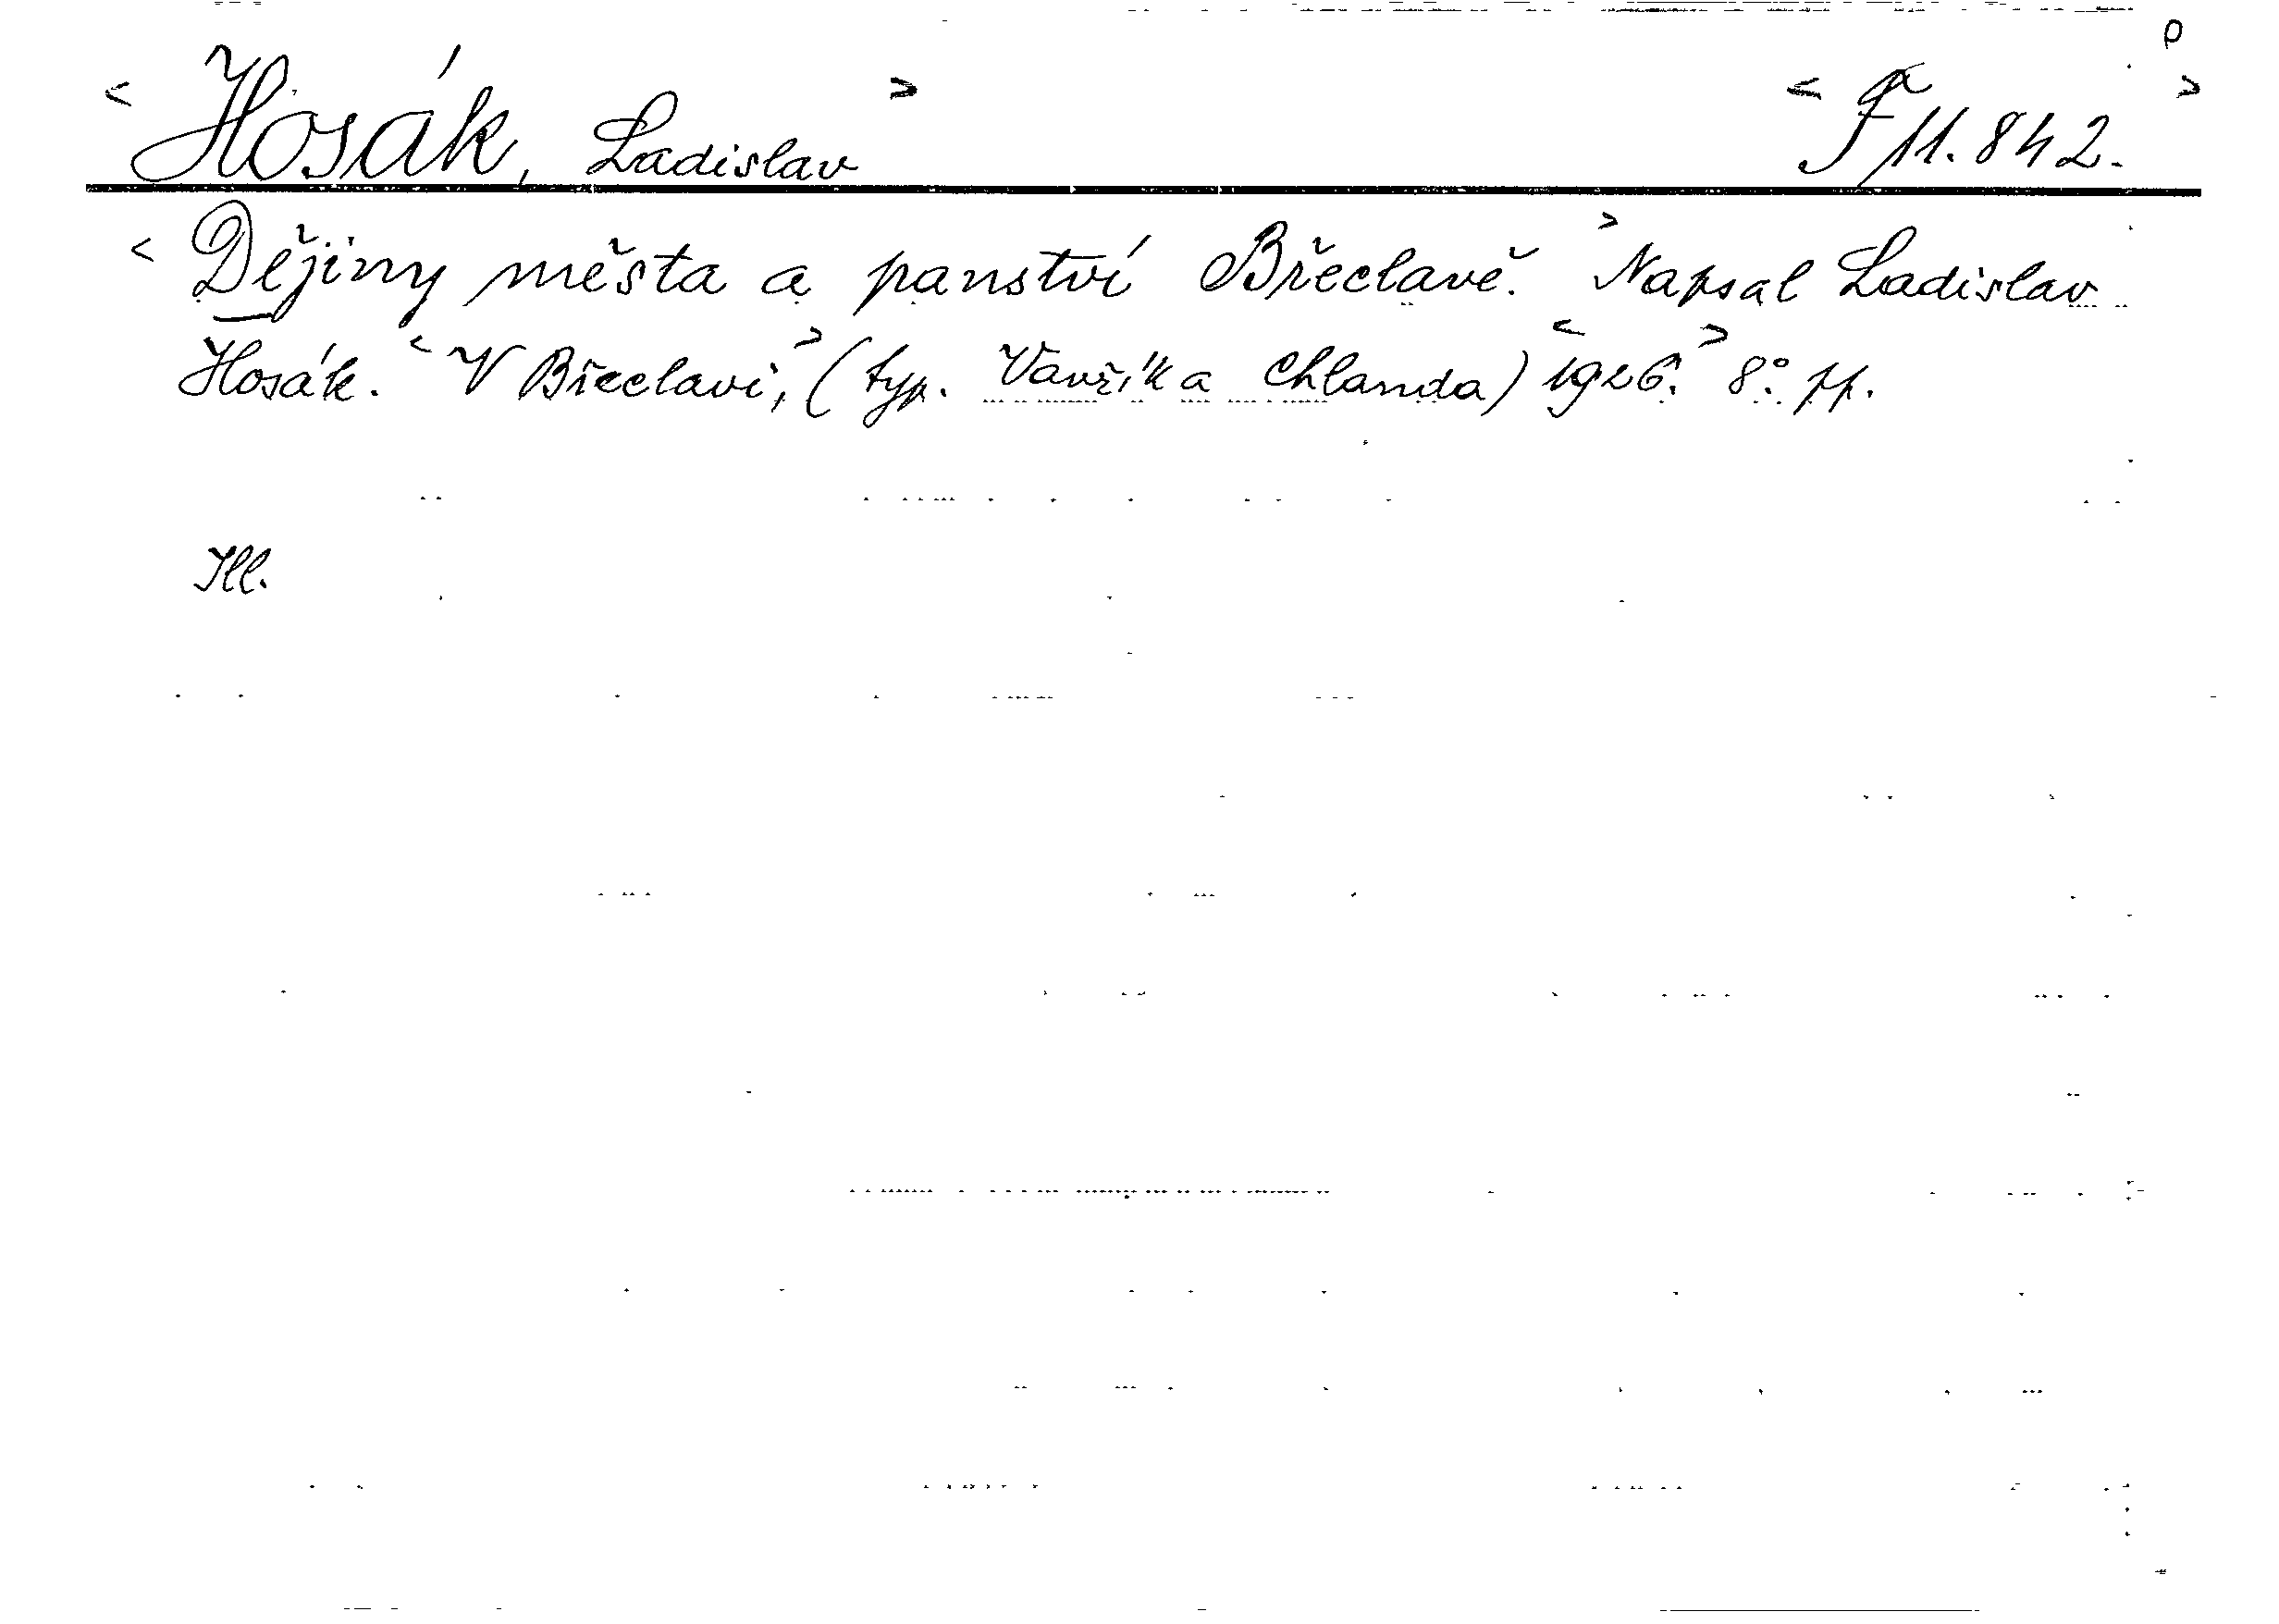 ρ
< Hosák, Ladislav > < F 11.842. >
< Dějiny města a panství Břeclavě. > Napsal Ladislav
Hosák. < V Břeclavi, > (typ. Vavřík a Chlanda) < 1926. > 8° pp.
Ill.